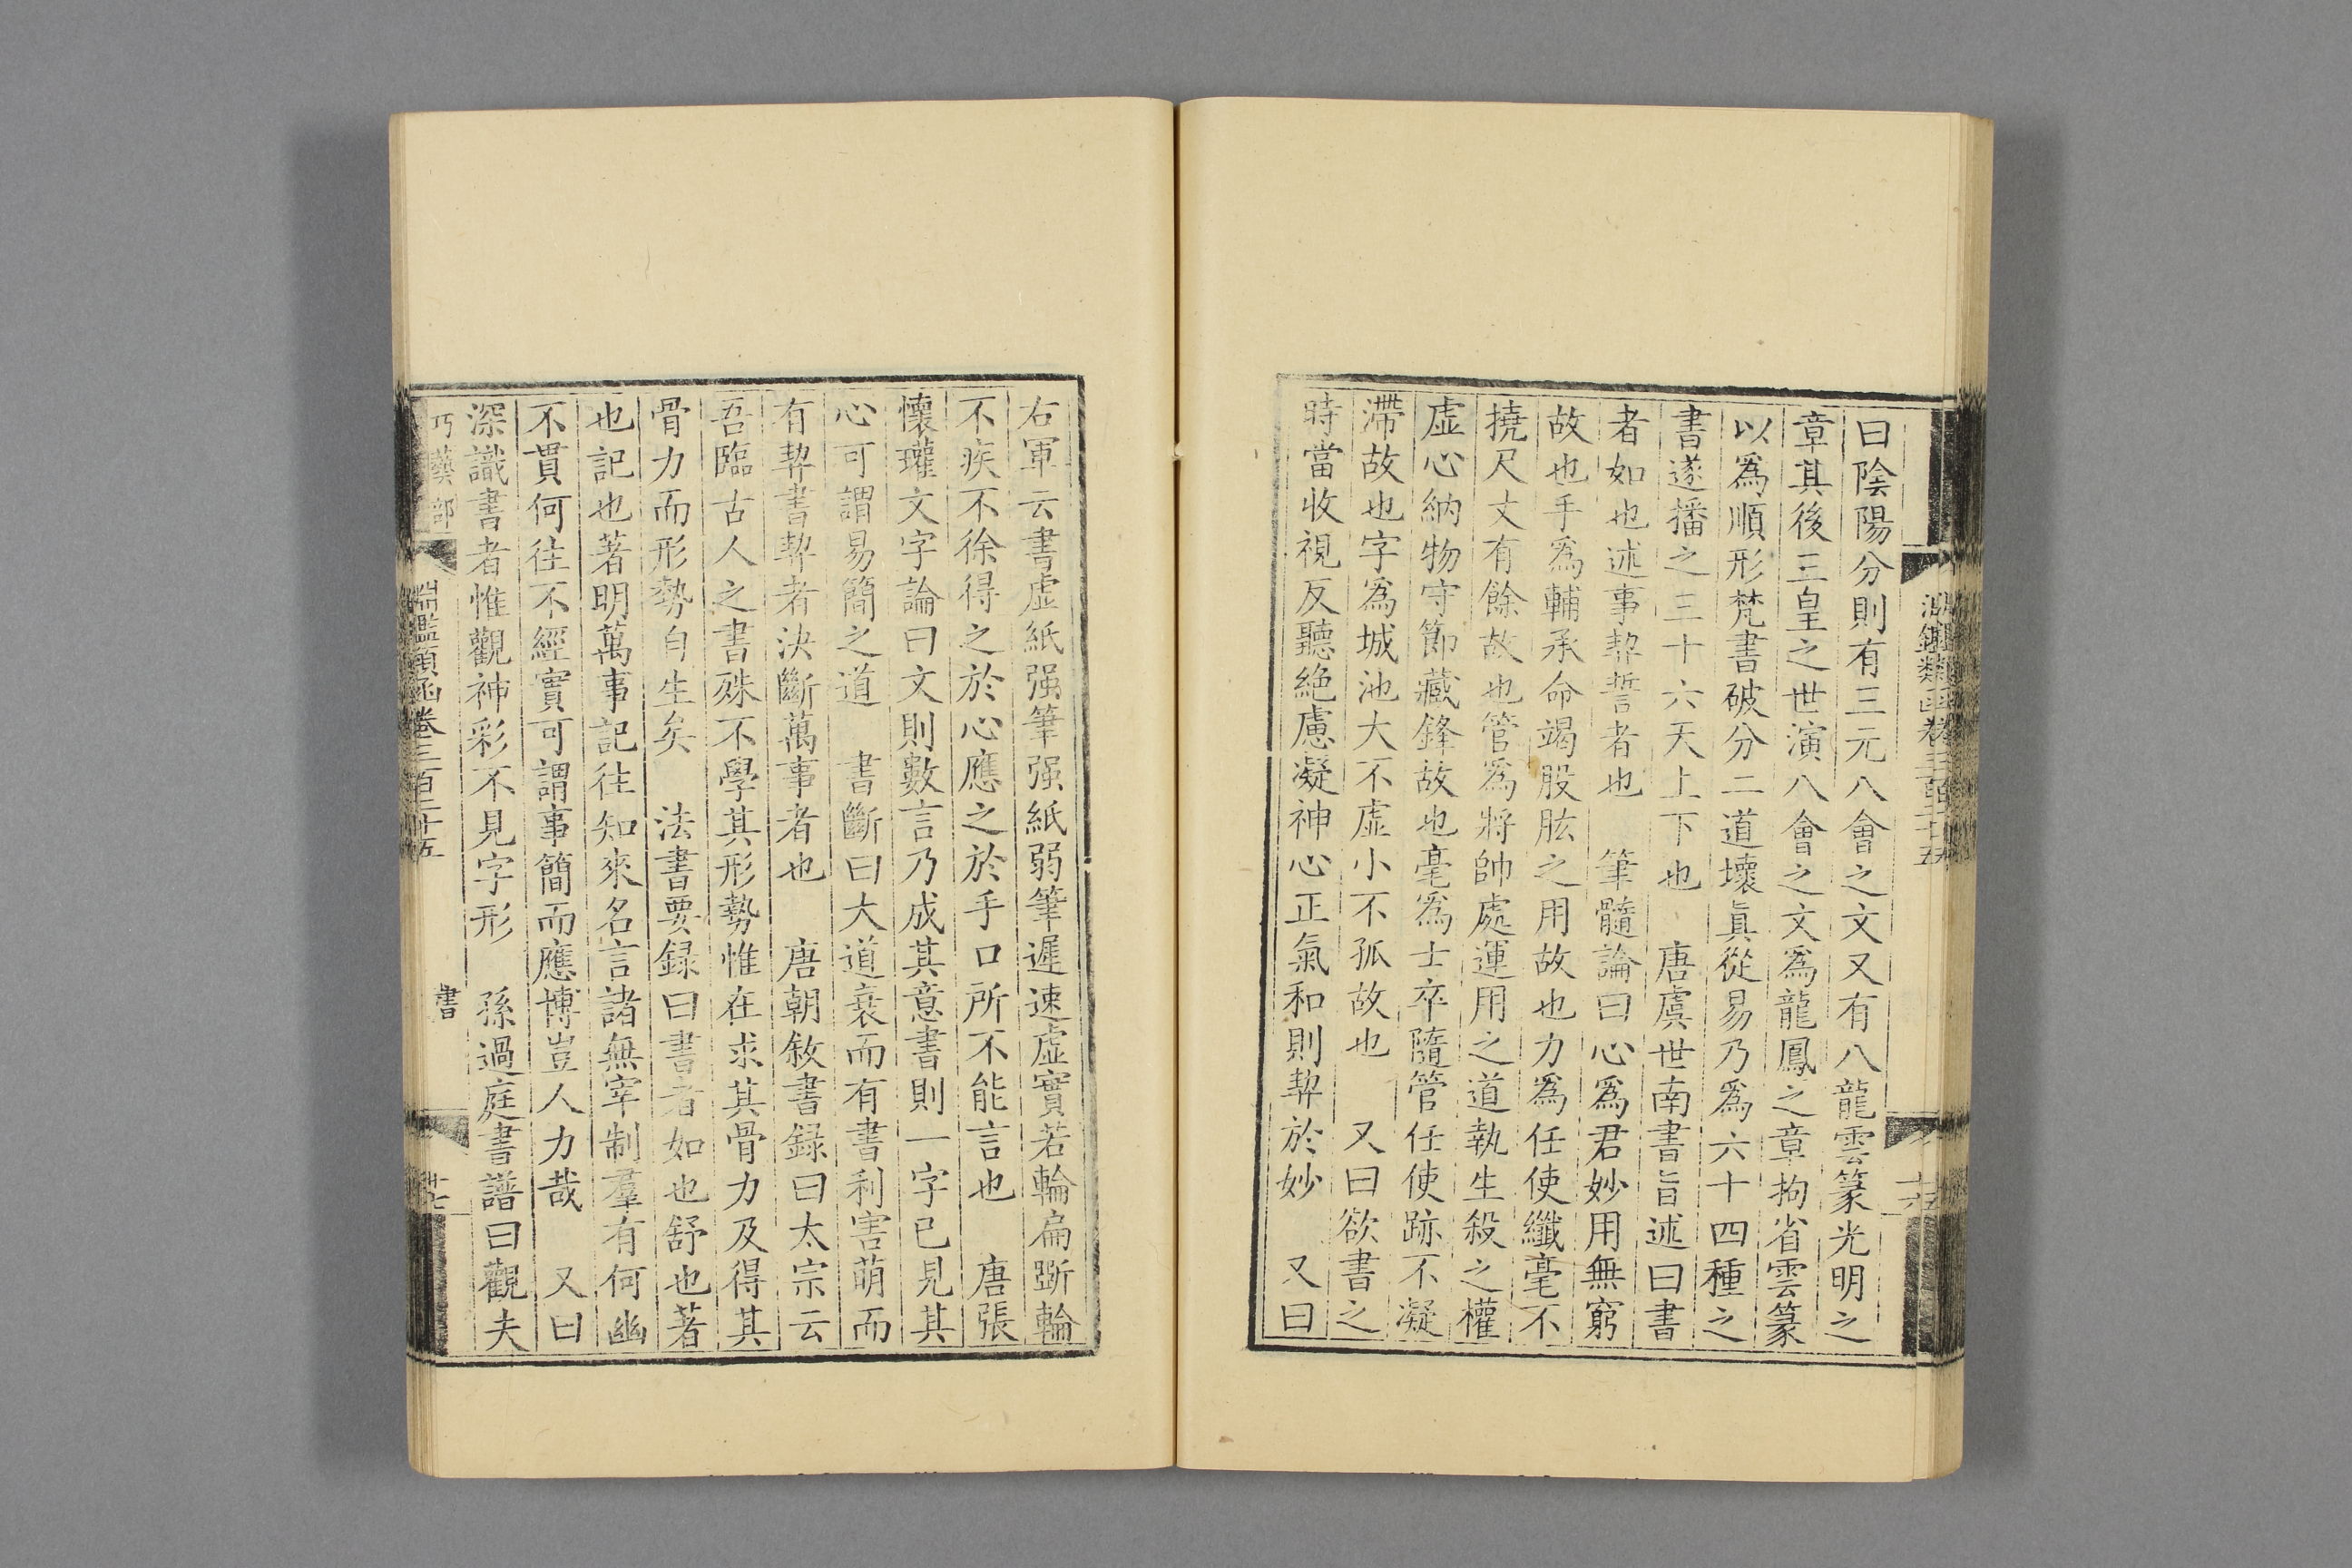 曰陰陽分則有三元八會之文又有八龍雲篆光明之
章其後三皇之世演八會之文爲龍鳳之章拘省雲篆
以爲順形梵書破分二道壞眞從易乃爲六十四種之
書遂播之三十六天上下也　唐虞世南書旨述曰書
者如也述事契誓者也　筆髓論曰心爲君妙用無窮
故也手爲輔承命竭股肱之用故也力爲任使纖毫不
撓尺丈有餘故也管爲將帥處運用之道執生殺之權
虛心納物守節藏鋒故也毫爲士卒隨管任使跡不凝
滯故也字爲城池大不虛小不孤故也　又曰欲書之
時當收視反聽絶慮凝神心正氣和則契於妙　又曰
右軍云書虛紙强筆强紙弱筆遲速虛實若輪扁斲輪
不疾不徐得之於心應之於手口所不能言也　唐張
懷瓘文字論曰文則數言乃成其意書則一字已見其
心可謂易簡之道　書斷曰大道衰而有書利害萌而
有契書契者決斷萬事者也　唐朝敘書録曰太宗云
吾臨古人之書殊不學其形勢惟在求其骨力及得其
骨力而形勢自生矣　法書要録曰書者如也舒也著
也記也著明萬事記往知來名言諸無宰制羣有何幽
不貫何往不經實可謂事簡而應博豈人力哉　又曰
深識書者惟觀神彩不見字形　孫過庭書譜曰觀夫
巧藝部
淵鑑類函卷三百二十五
書